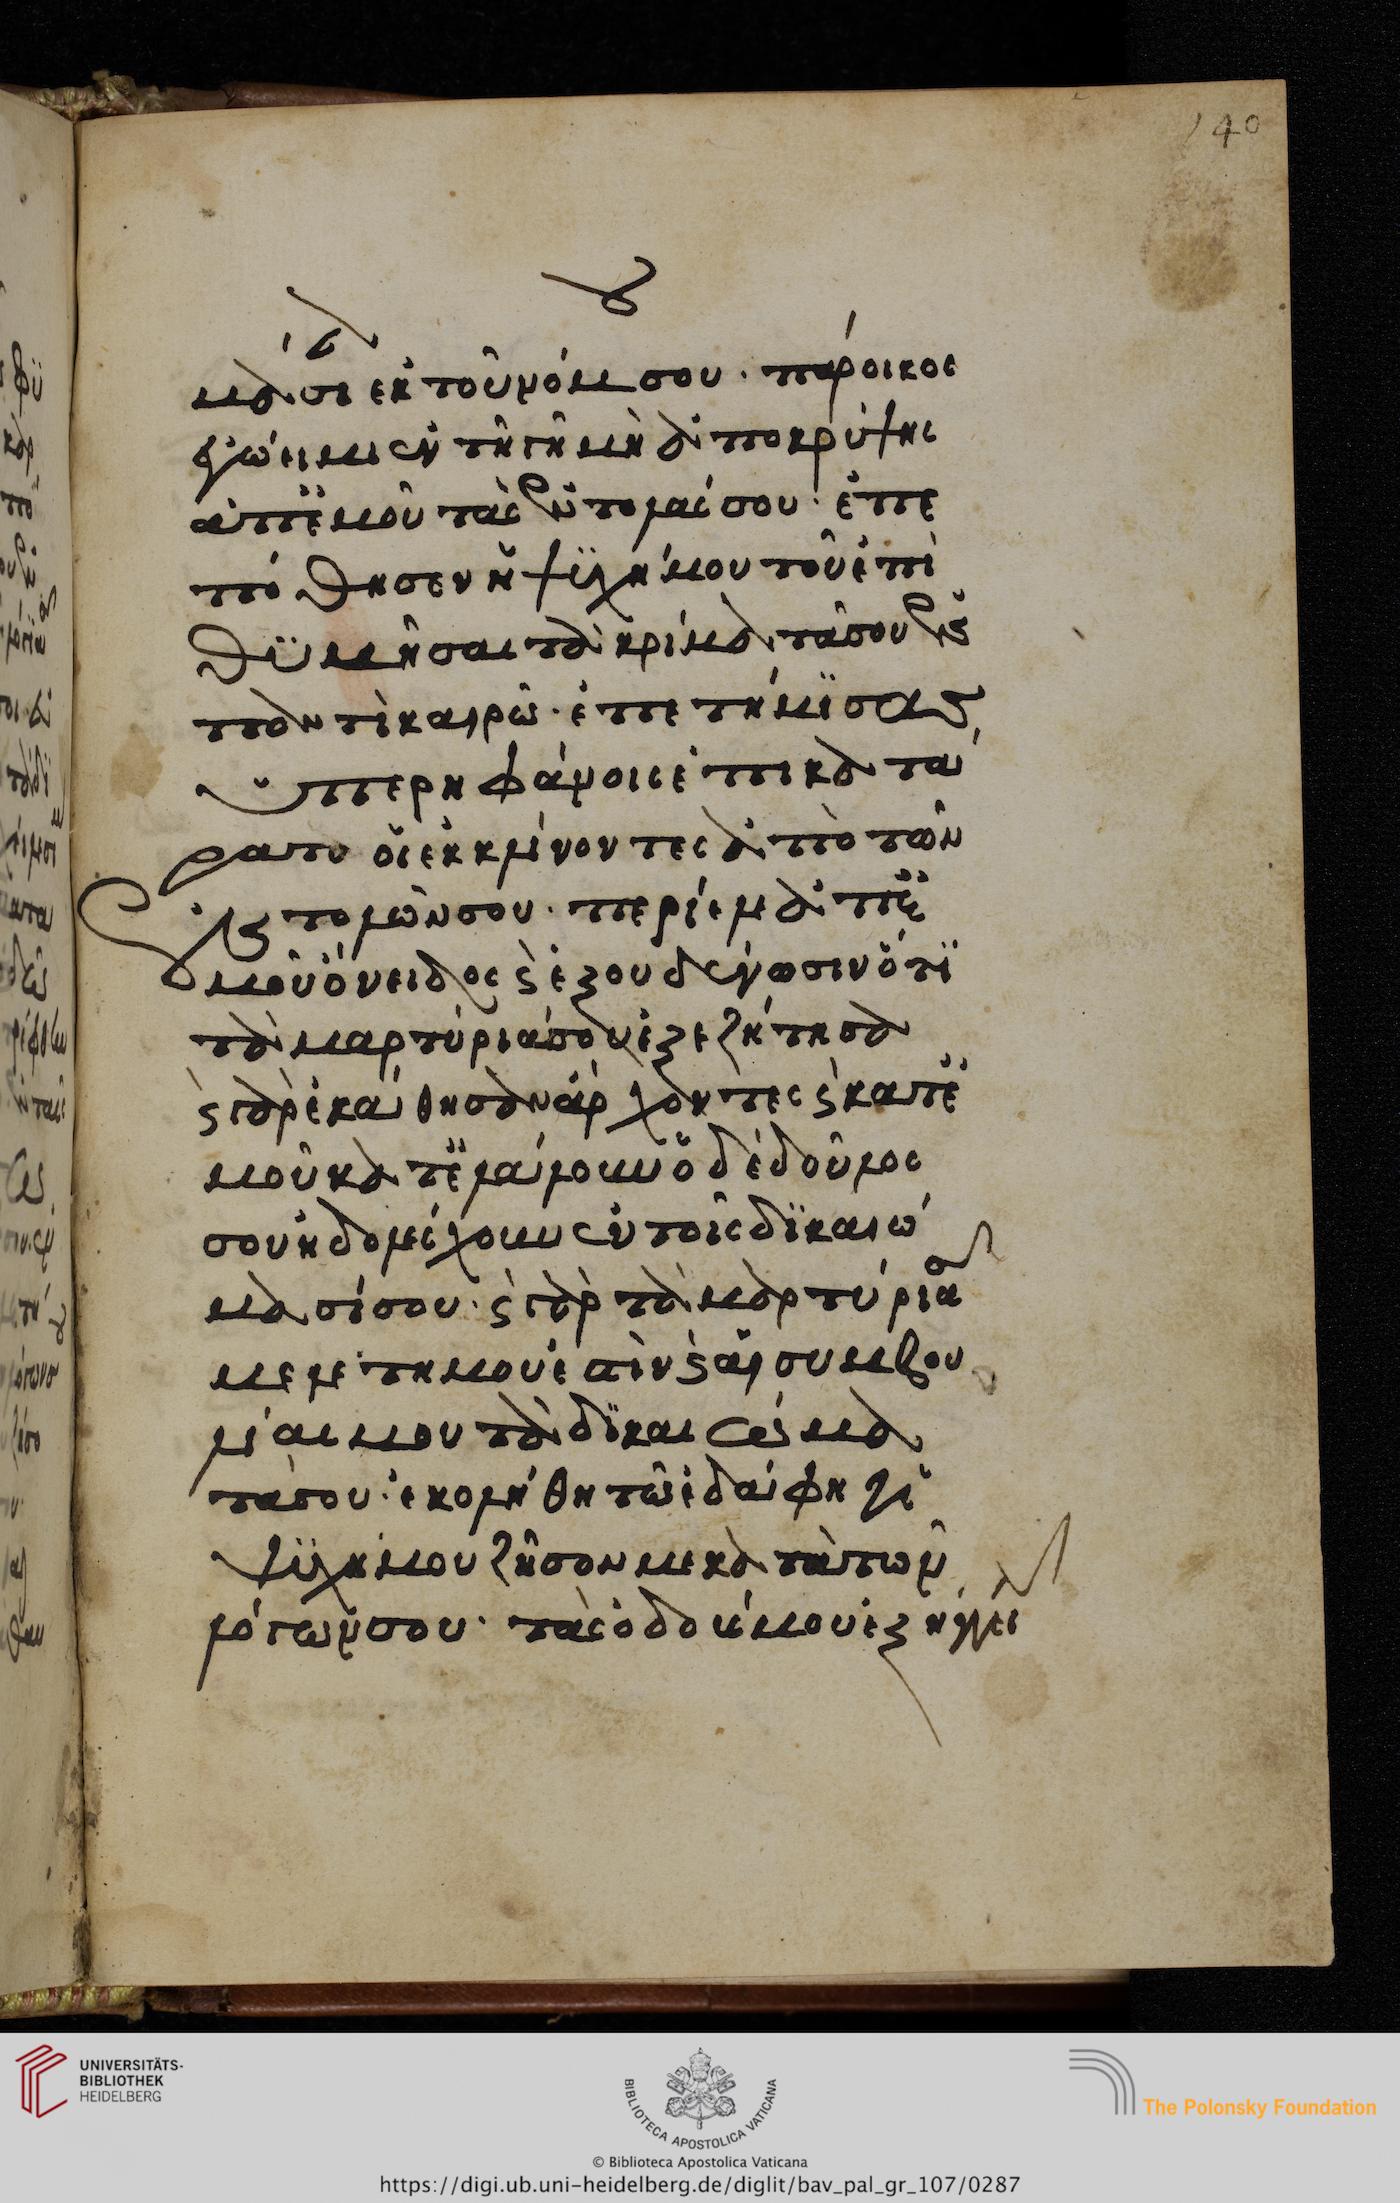 140
μάσι ἐκ τοῦ νόμου σου· πάροικος
ἐγώ εἰμι ἐν τῆ γῆ μὴ ἀποκρύψης
ἀπ ἐμοῦ τὰς ἐντολάς σου· ἐπε
πόθησεν ἡ ψϋχή μου τοῦ ἐπι
θϋμῆσαι τὰ κρίματά σου ἐν
παντὶ καιρῶ· ἐπετήμϊσας
ὑπερηφάνοις ἐπικατά
ρατοι οἱ ἐκκλίνοντες ἀπὸ τῶν
ἐντολῶν σου· περίελε ἀπ ἐ
μοῦ ὄνειδος ϛ ἐξουδένωσιν ὅτϊ
τὰ μαρτύριά σου ἐξεζήτησα
ϛ γὰρ ἐκάθησαν ἄρχοντες ϛ κατ ἐ
μοῦ κατελάλουν ὁ δὲ δοῦλος
σου ἠδολέσχουν ἐν τοῖς δϊκαιώ
μασί σου· ϛ γὰρ τὰ μαρτύριά σου
μελέτη μου ἐστὶν ϛ αἱ συμβου
λίαι μου τὰ δϊκαιώμα
τά σου· ἐκολήθη τῶ ἐδάφη ἡ
ψϋχή μου ζῆσον με κατὰ τὸν
λόγων σου· τὰς ὁδούς μου ἐξήγγει
UNIVERSITÄTS-
BIBLIOTHEK
HEIDELBERG
BIBLIOTECA APOSTOLICA VATICANA
The Polonsky Foundation
© Biblioteca Apostolica Vaticana
https://digi.ub.uni-heidelberg.de/diglit/bav_pal_gr_107/0287